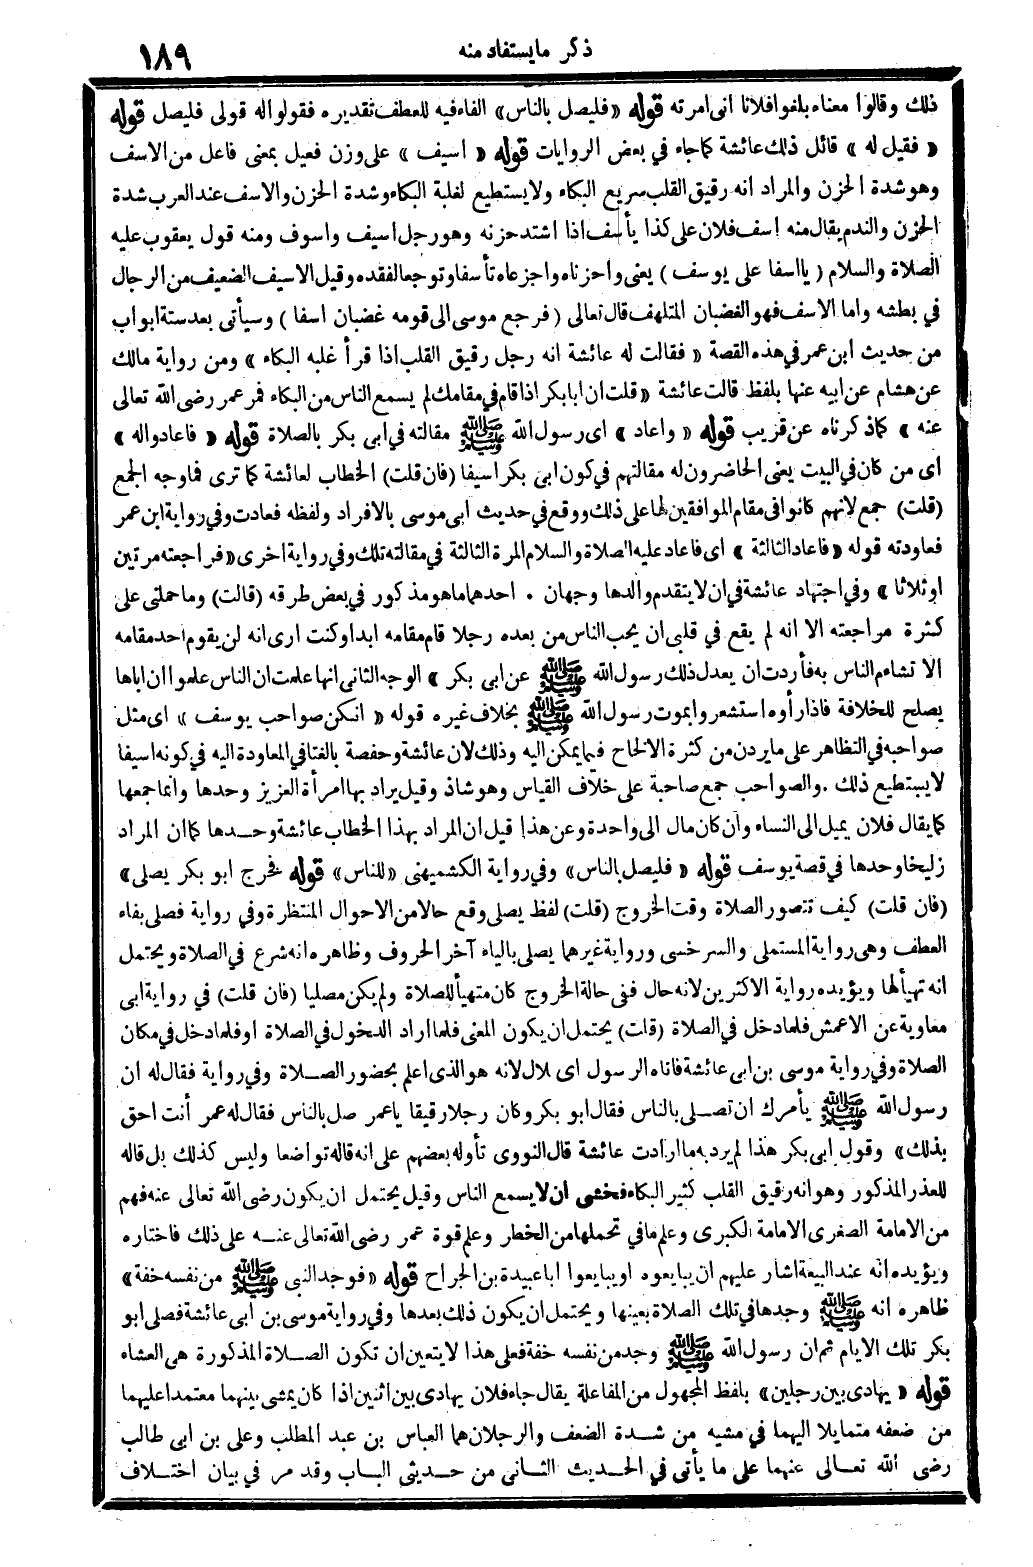 ذكر مايستفاد منه
١٨٩
ذلك وقالوا معناه بلغوا فلانا انى امرته قوله «فليصل بالناس» الفاء فيه للعطف تقديره فقولوا له قولى فليصل قوله
« فقيل له » قائل ذلك عائشة كماجاء في بعض الروايات قوله « اسيف » على وزن فعيل بمعنى فاعل من الاسف
وهو شدة الحزن والمراد انه رقيق القلب سريع البكاء ولا يستطيع لغلبة البكاء وشدة الحزن والاسف عند العرب شدة
الحزن والندم يقال منه اسف فلان على كذا يأسف اذا اشتد حزنه وهو رجل اسيف واسوف ومنه قول يعقوب عليه
الصلاة والسلام ( يا اسفا على يوسف ) يعنى واحزناه واجزعاه تأسفا وتوجعا لفقده وقيل الاسيف الضعيف من الرجال
في بطشه واما الاسف فهو الغضبان المتلهف قال تعالى ( فرجع موسى الى قومه غضبان اسفا ) وسيأتى بعد ستة ابواب
من حديث ابن عمر في هذه القصة « فقالت له عائشة انه رجل رقيق القلب اذا قرأ غلبه البكاء » ومن رواية مالك
عن هشام عن ابيه عنها بلفظ قالت عائشة « قلت ان ابابكر اذا قام في مقامك لم يسمع الناس من البكاء فمر عمر رضى الله تعالى
عنه » كماذكرناه عن قريب قوله « واعاد » اى رسول الله ﷺ مقالته في ابى بكر بالصلاة قوله « فاعادوا له »
اى من كان في البيت يعنى الحاضرون له مقالتهم في كون ابى بكر اسيفا (فان قلت) الخطاب لعائشة كما ترى فما وجه الجمع
(قلت) جمع لانهم كانوا فى مقام الموافقين لها على ذلك ووقع في حديث ابى موسى بالافراد ولفظه فعادت وفي رواية ابن عمر
فعاودته قوله « فاعاد الثالثة » اى فاعاد عليه الصلاة والسلام المرة الثالثة في مقالته تلك وفي رواية اخرى «فراجعته مرتين
او ثلاثا » وفي اجتهاد عائشة في ان لا يتقدم والدها وجهان . احدهما ماهو مذكور في بعض طرقه (قالت) وماحملنى على
كثرة مراجعته الا انه لم يقع في قلبى ان يحب الناس من بعده رجلا قام مقامه ابدا وكنت ارى انه لن يقوم احد مقامه
الا تشاءم الناس به فأردت ان يعدل ذلك رسول الله ﷺ عن ابى بكر » الوجه الثانى انها علمت ان الناس علموا ان اباها
يصلح للخلافة فاذا رأوه استشعروا بموت رسول الله ﷺ بخلاف غيره قوله « انكن صواحب يوسف » اى مثل
صواحبه في التظاهر على مايردن من كثرة الالحاح فيما يمكن اليه وذلك لان عائشة وحفصة بالغتا في المعاودة اليه في كونه اسيفا
لا يستطيع ذلك . والصواحب جمع صاحبة على خلاف القياس وهو شاذ وقيل يراد بها امرأة العزيز وحدها وانما جمعها
كما يقال فلان يميل الى النساء وان كان مال الى واحدة وعن هذا قيل ان المراد بهذا الخطاب عائشة وحدها كما ان المراد
زليخا وحدها في قصة يوسف قوله « فليصل بالناس» وفي رواية الكشميهنى «للناس» قوله « فخرج ابو بكر يصلى »
(فان قلت) كيف تتصور الصلاة وقت الخروج (قلت) لفظ يصلى وقع حالا من الاحوال المنتظرة وفي رواية فصلى بفاء
العطف وهى رواية المستملى والسرخسى ورواية غيرهما يصلى بالياء آخر الحروف وظاهره انه شرع في الصلاة ويحتمل
انه تهيأ لها ويؤيده رواية الاكثرين لانه حال فنى حالة الخروج كان متهيأ للصلاة ولم يكن مصليا (فان قلت) في رواية ابى
معاوية عن الاعمش فلما دخل في الصلاة (قلت) يحتمل ان يكون المعنى فلما اراد الدخول في الصلاة او فلما دخل في مكان
الصلاة وفي رواية موسى بن ابى عائشة فاتاه الرسول اى بلال لانه هو الذى اعلم بحضور الصلاة وفي رواية فقال له ان
رسول الله ﷺ يأمرك ان تصلى بالناس فقال ابو بكر وكان رجلا رقيقا ياعمر صل بالناس فقال له عمر أنت احق
بذلك» وقول ابى بكر هذا لم يرد به ما ارادت عائشة قال النووى تأوله بعضهم على انه قاله تواضعا وليس كذلك بل قاله
للعذر المذكور وهو انه رقيق القلب كثير البكاء فخشى ان لا يسمع الناس وقيل يحتمل ان يكون رضى الله تعالى عنه فهم
من الامامة الصغرى الامامة الكبرى وعلم مافي تحملها من الخطر وعلم قوة عمر رضى الله تعالى عنه على ذلك فاختاره
ويؤيده انه عند البيعة اشار عليهم ان يبايعوه او يبايعوا اباعبيدة بن الجراح قوله «فوجد النبى ﷺ من نفسه خفة»
ظاهره انه ﷺ وجدها في تلك الصلاة بعينها ويحتمل ان يكون ذلك بعدها وفي رواية موسى بن ابى عائشة فصلى ابو
بكر تلك الايام ثم ان رسول الله ﷺ وجد من نفسه خفة فعلى هذا لا يتعين ان تكون الصلاة المذكورة هى العشاء
قوله « يهادى بين رجلين» بلفظ المجهول من المفاعلة يقال جاء فلان يهادى بين اثنين اذا كان يمشى بينهما معتمدا عليهما
من ضعفه متمايلا اليهما في مشيه من شدة الضعف والرجلان هما العباس بن عبد المطلب وعلى بن ابى طالب
رضى الله تعالى عنهما على ما يأتى في الحديث الثانى من حديثى الباب وقد مر في بيان اختلاف